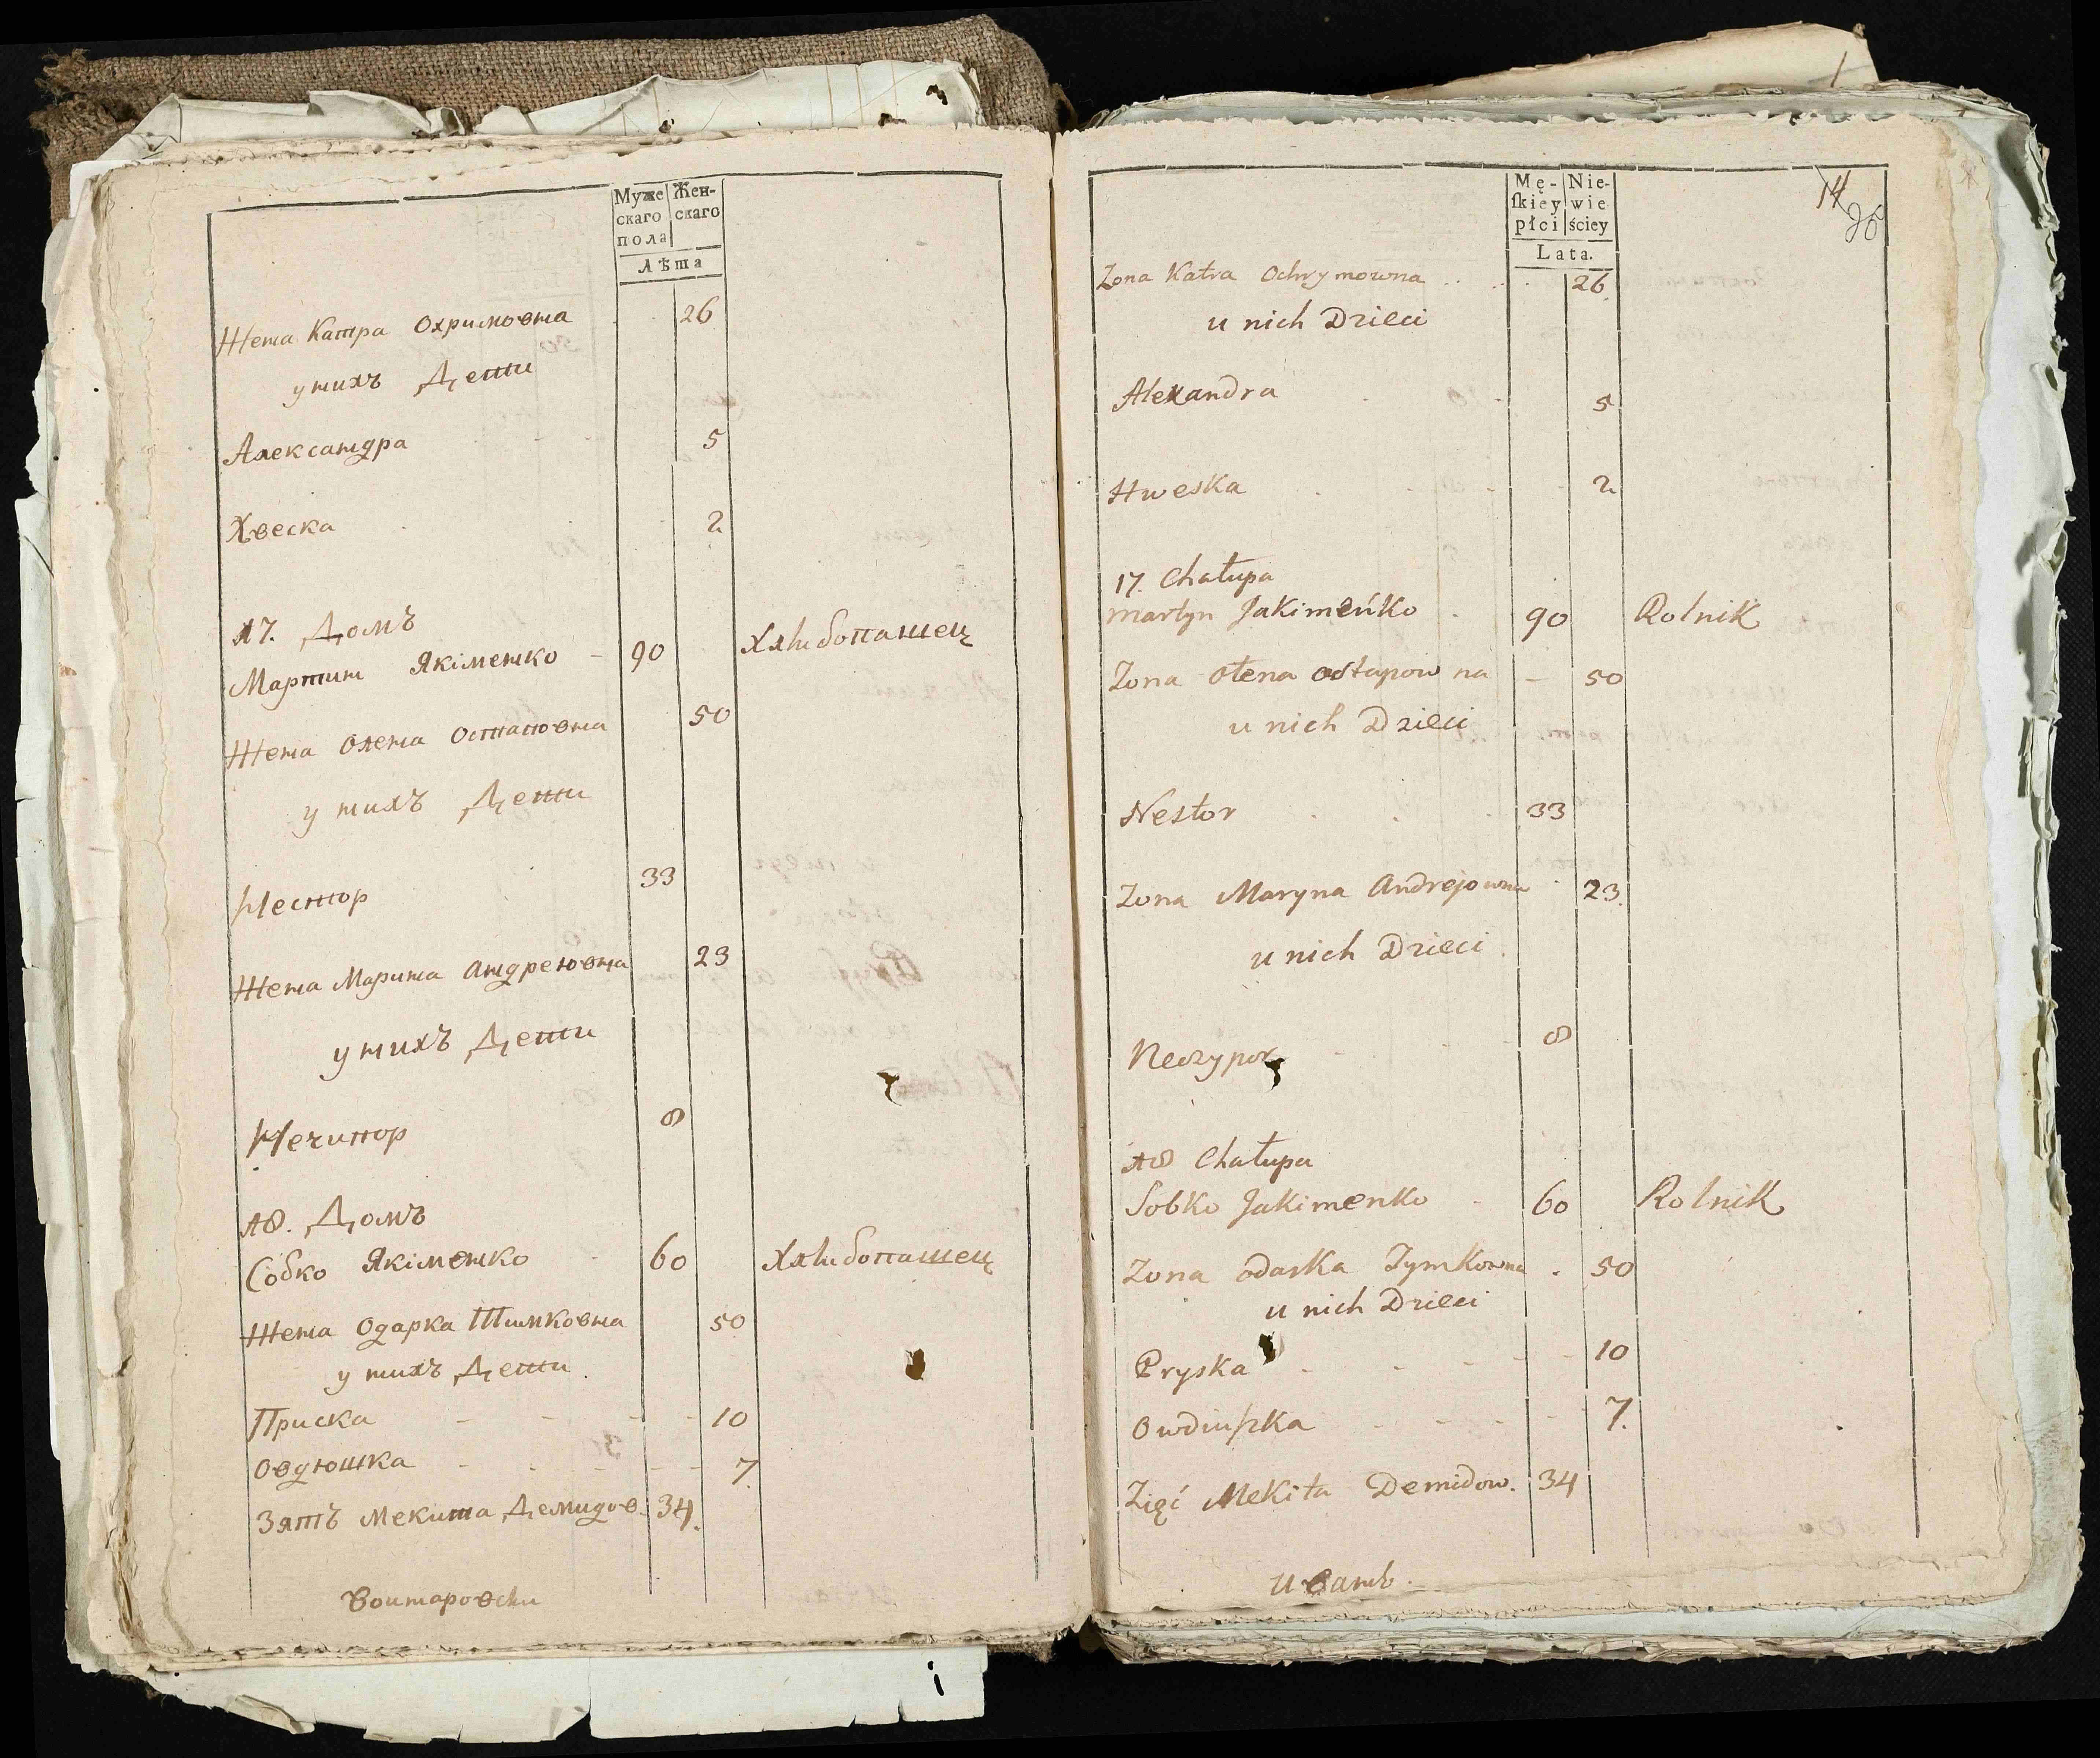 Муже Жен-
скаго скаго
пола
Лѣта
Жена Катра Охримовна 26
у нихъ Дети
Александра 5
Хвеска 2
17. Домъ
Мартин Якіменко - 90 Хлѣбопашец
Жена Олена Остаповна 50
у нихъ Дети
Нестор 33
Жена Марина Андреювна 23
у нихъ Дети
Нечипор 8
18. Домъ
Собко Якіменко 60 Хлѣбопашец
Жена Одарка Тимковна 50
у нихъ Дети
Приска - - - - 10
Овдюшка - - - - - 7.
Зятъ Мекита Демидов. 34.
14
Mę- Nie-
ſkiey wie
płci ściey
Lata.
Zona Katra Ochrymowna 26.
u nich Dzieci
Alexandra 5
Hweska 2
17. Chałupa
Martyn Jakimeńko 90 Rolnik
Zona Ołena ostapowna - 50
u nich Dzieci
Nestor 33
Zona Maryna Andrejowna 23.
u nich Dzieci
Neczypor 8
18 Chałupa
Sobko Jakimenko - 60 Rolnik
Zona odarka Tymkowna . 50
u nich Dzieci
Pryska - - - - - 10
Owdiuſzka - - - - 7.
Zięć Mekita Demidow. 34
Иванъ.